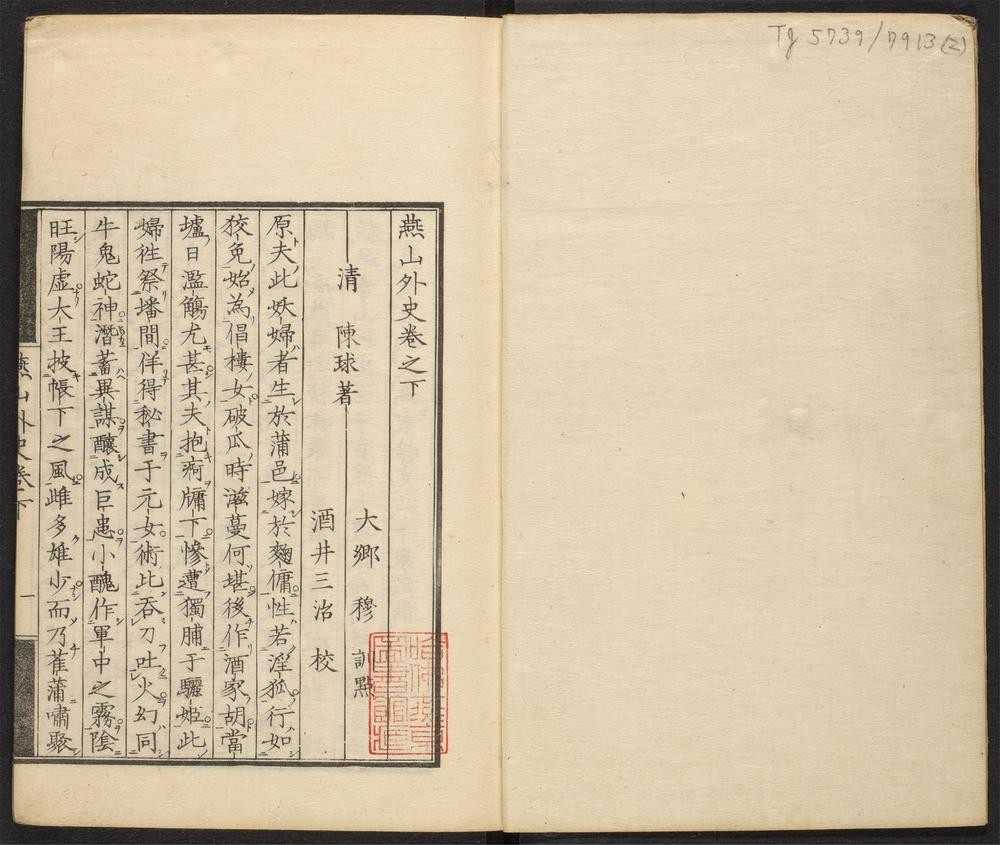 Tj 5739/7913(2)
燕山外史卷之下
清 陳球著
大鄉 穆 訓點
酒井三治 校
原夫此妖婦者生於蒲邑嫁於麴傭性若淫狐行如
狡兔始為倡樓女破瓜時滋蔓何堪後作酒家胡當
壚日濫觴尤甚其夫抱痾牖下慘遭獨脯于驪姬此
婦徃祭墦間佯得秘書于元女術比吞刀吐火幻同
牛鬼蛇神潛蓄異謀釀成巨患小醜作軍中之霧陰
旺陽虛大王披帳下之風雌多雄少而乃萑蒲嘯聚
燕山外史卷下
一
哈佛燕京圖書館